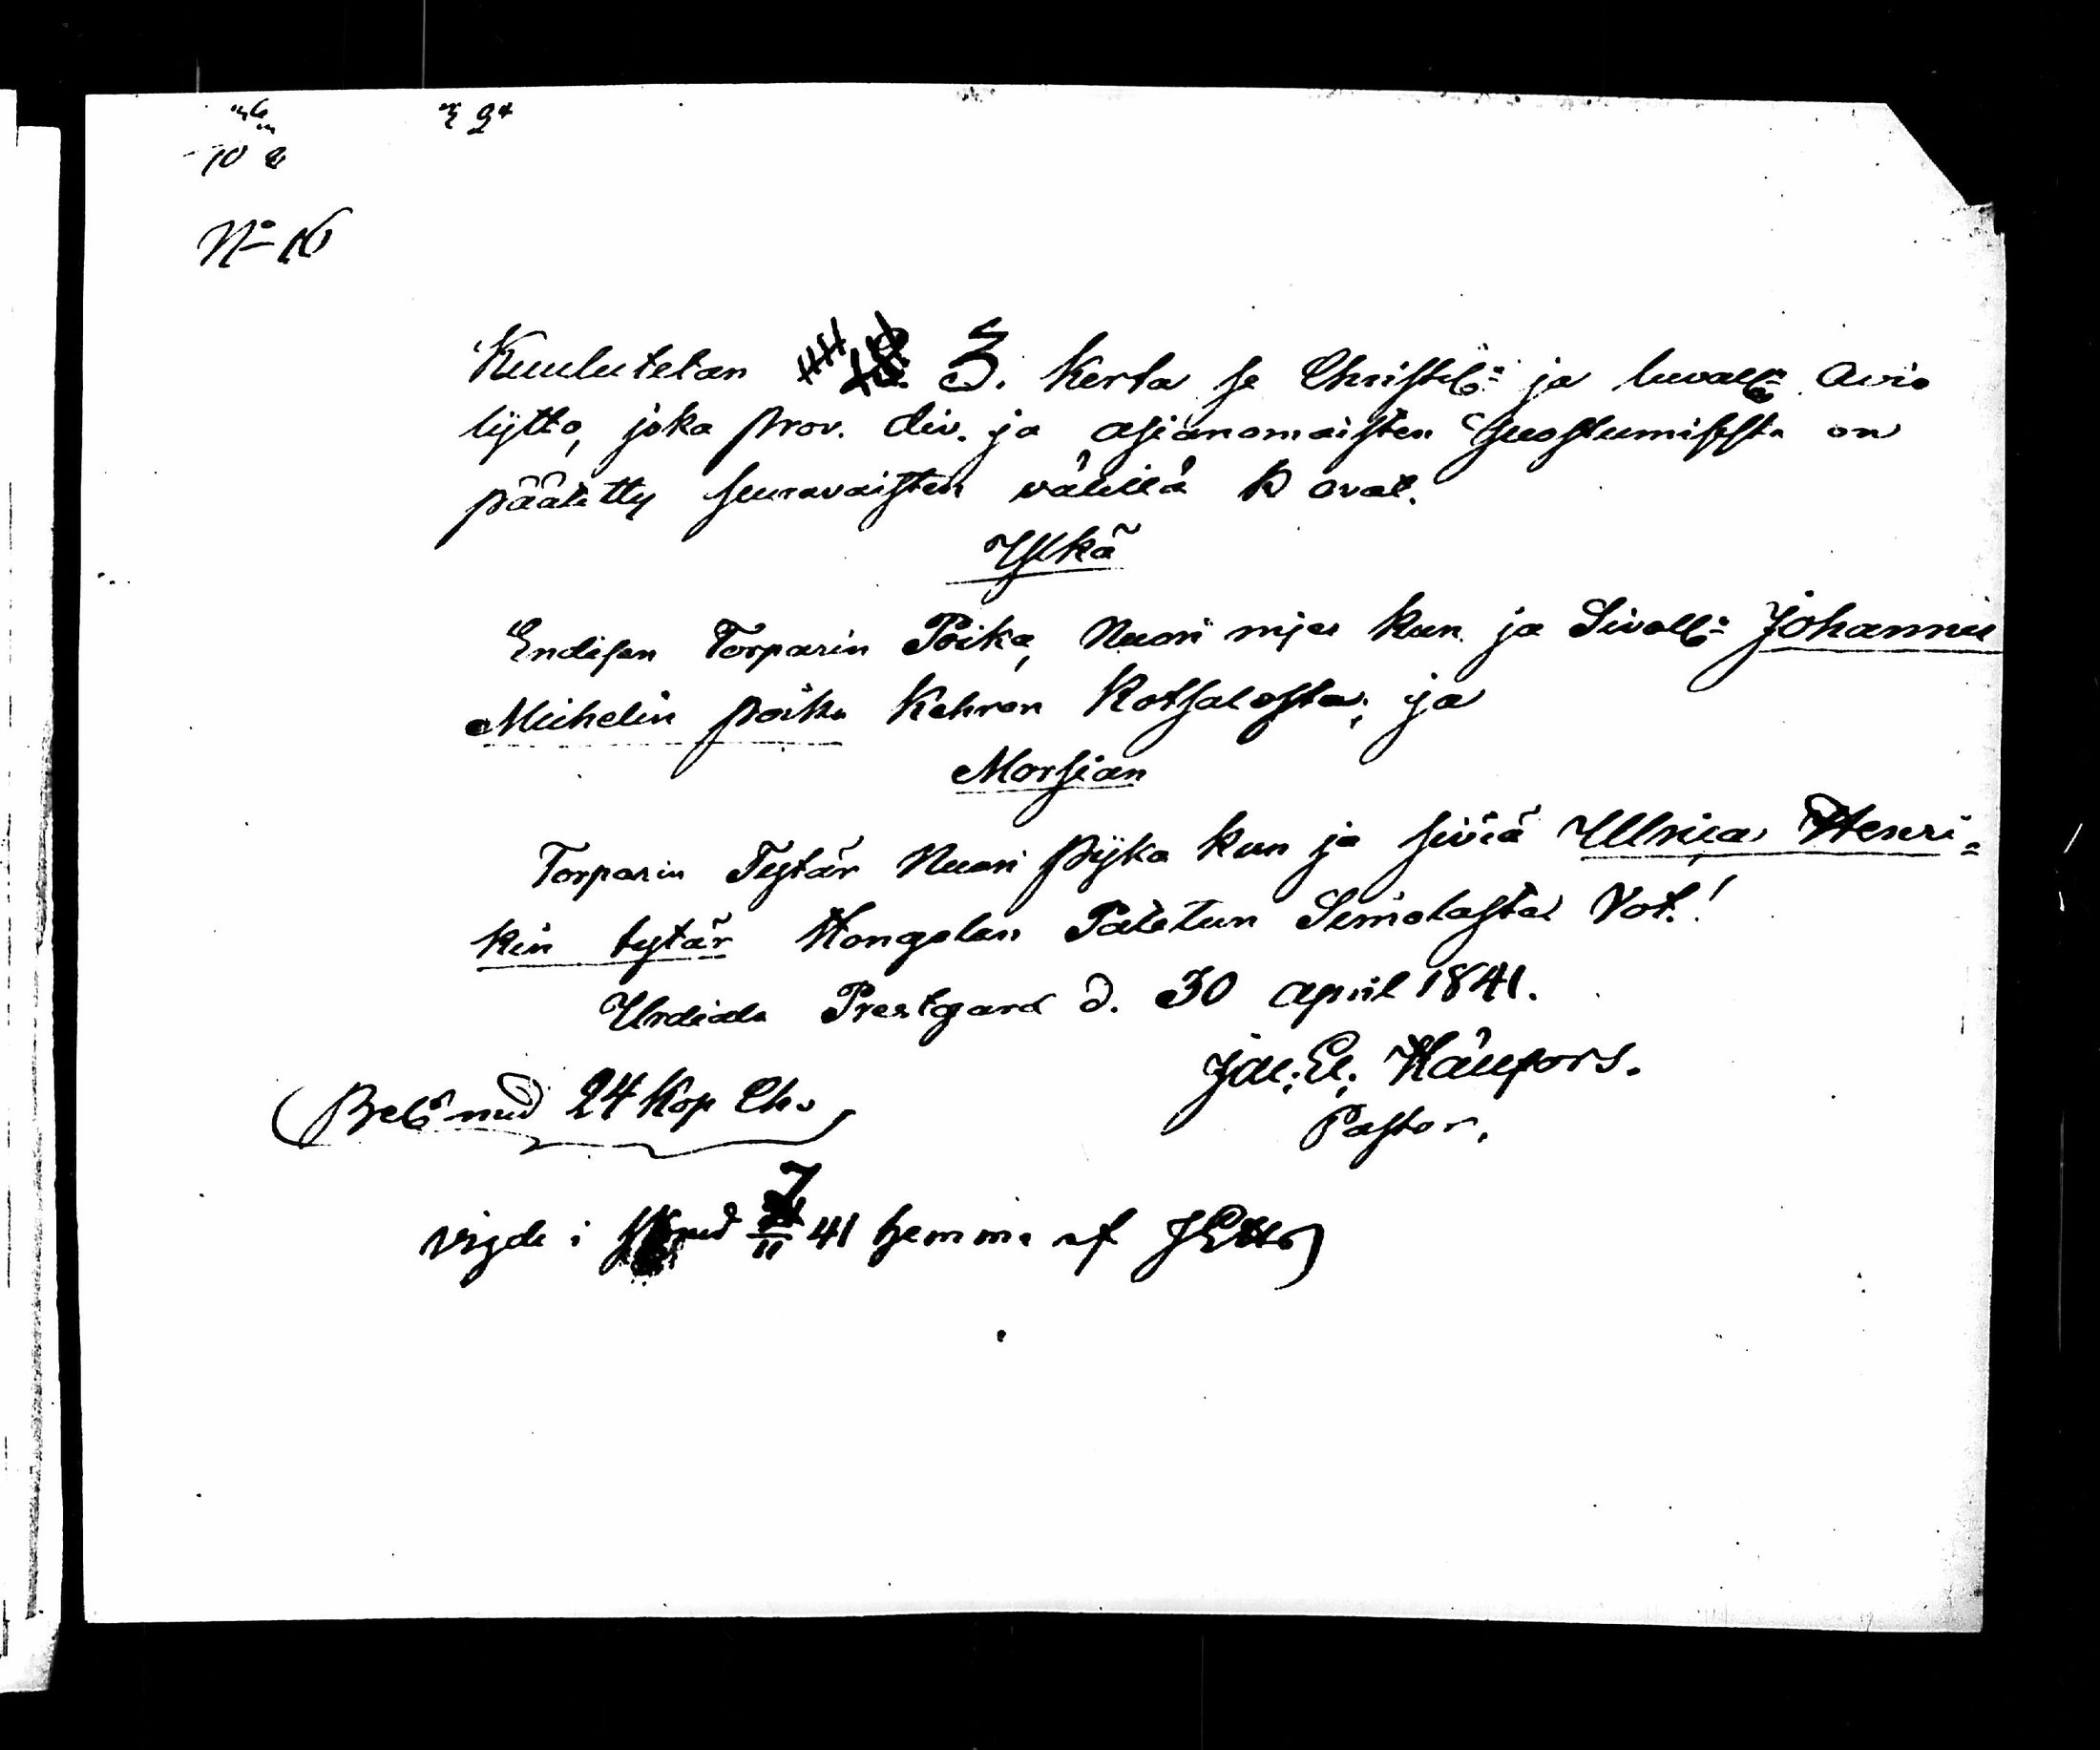 10 2
No 16
Kuulutetan 3. Kerta se Christel: ja luvall: Avio
lijtto, joka prov. div. ja asianomaisten suostumissta on
päätetty seuravaisten välillä k ovat.
Yllkä
Endisen Torparin Poika, Nuori mies kun. ja Sivall: Johannes
Michelin poika Kehron Kotsalosta; ja
Morsian
Torparin Tytär Nuori pijka kun ja siviä Ullrica Henri=
kin tytär Hongolan Simolasta Vot.!
Urdiala Prestgard d. 30 april 1841.
Jac. El. Hällfors.
Pastor.
24 Kop
vigde i 7/11 41 hemma af